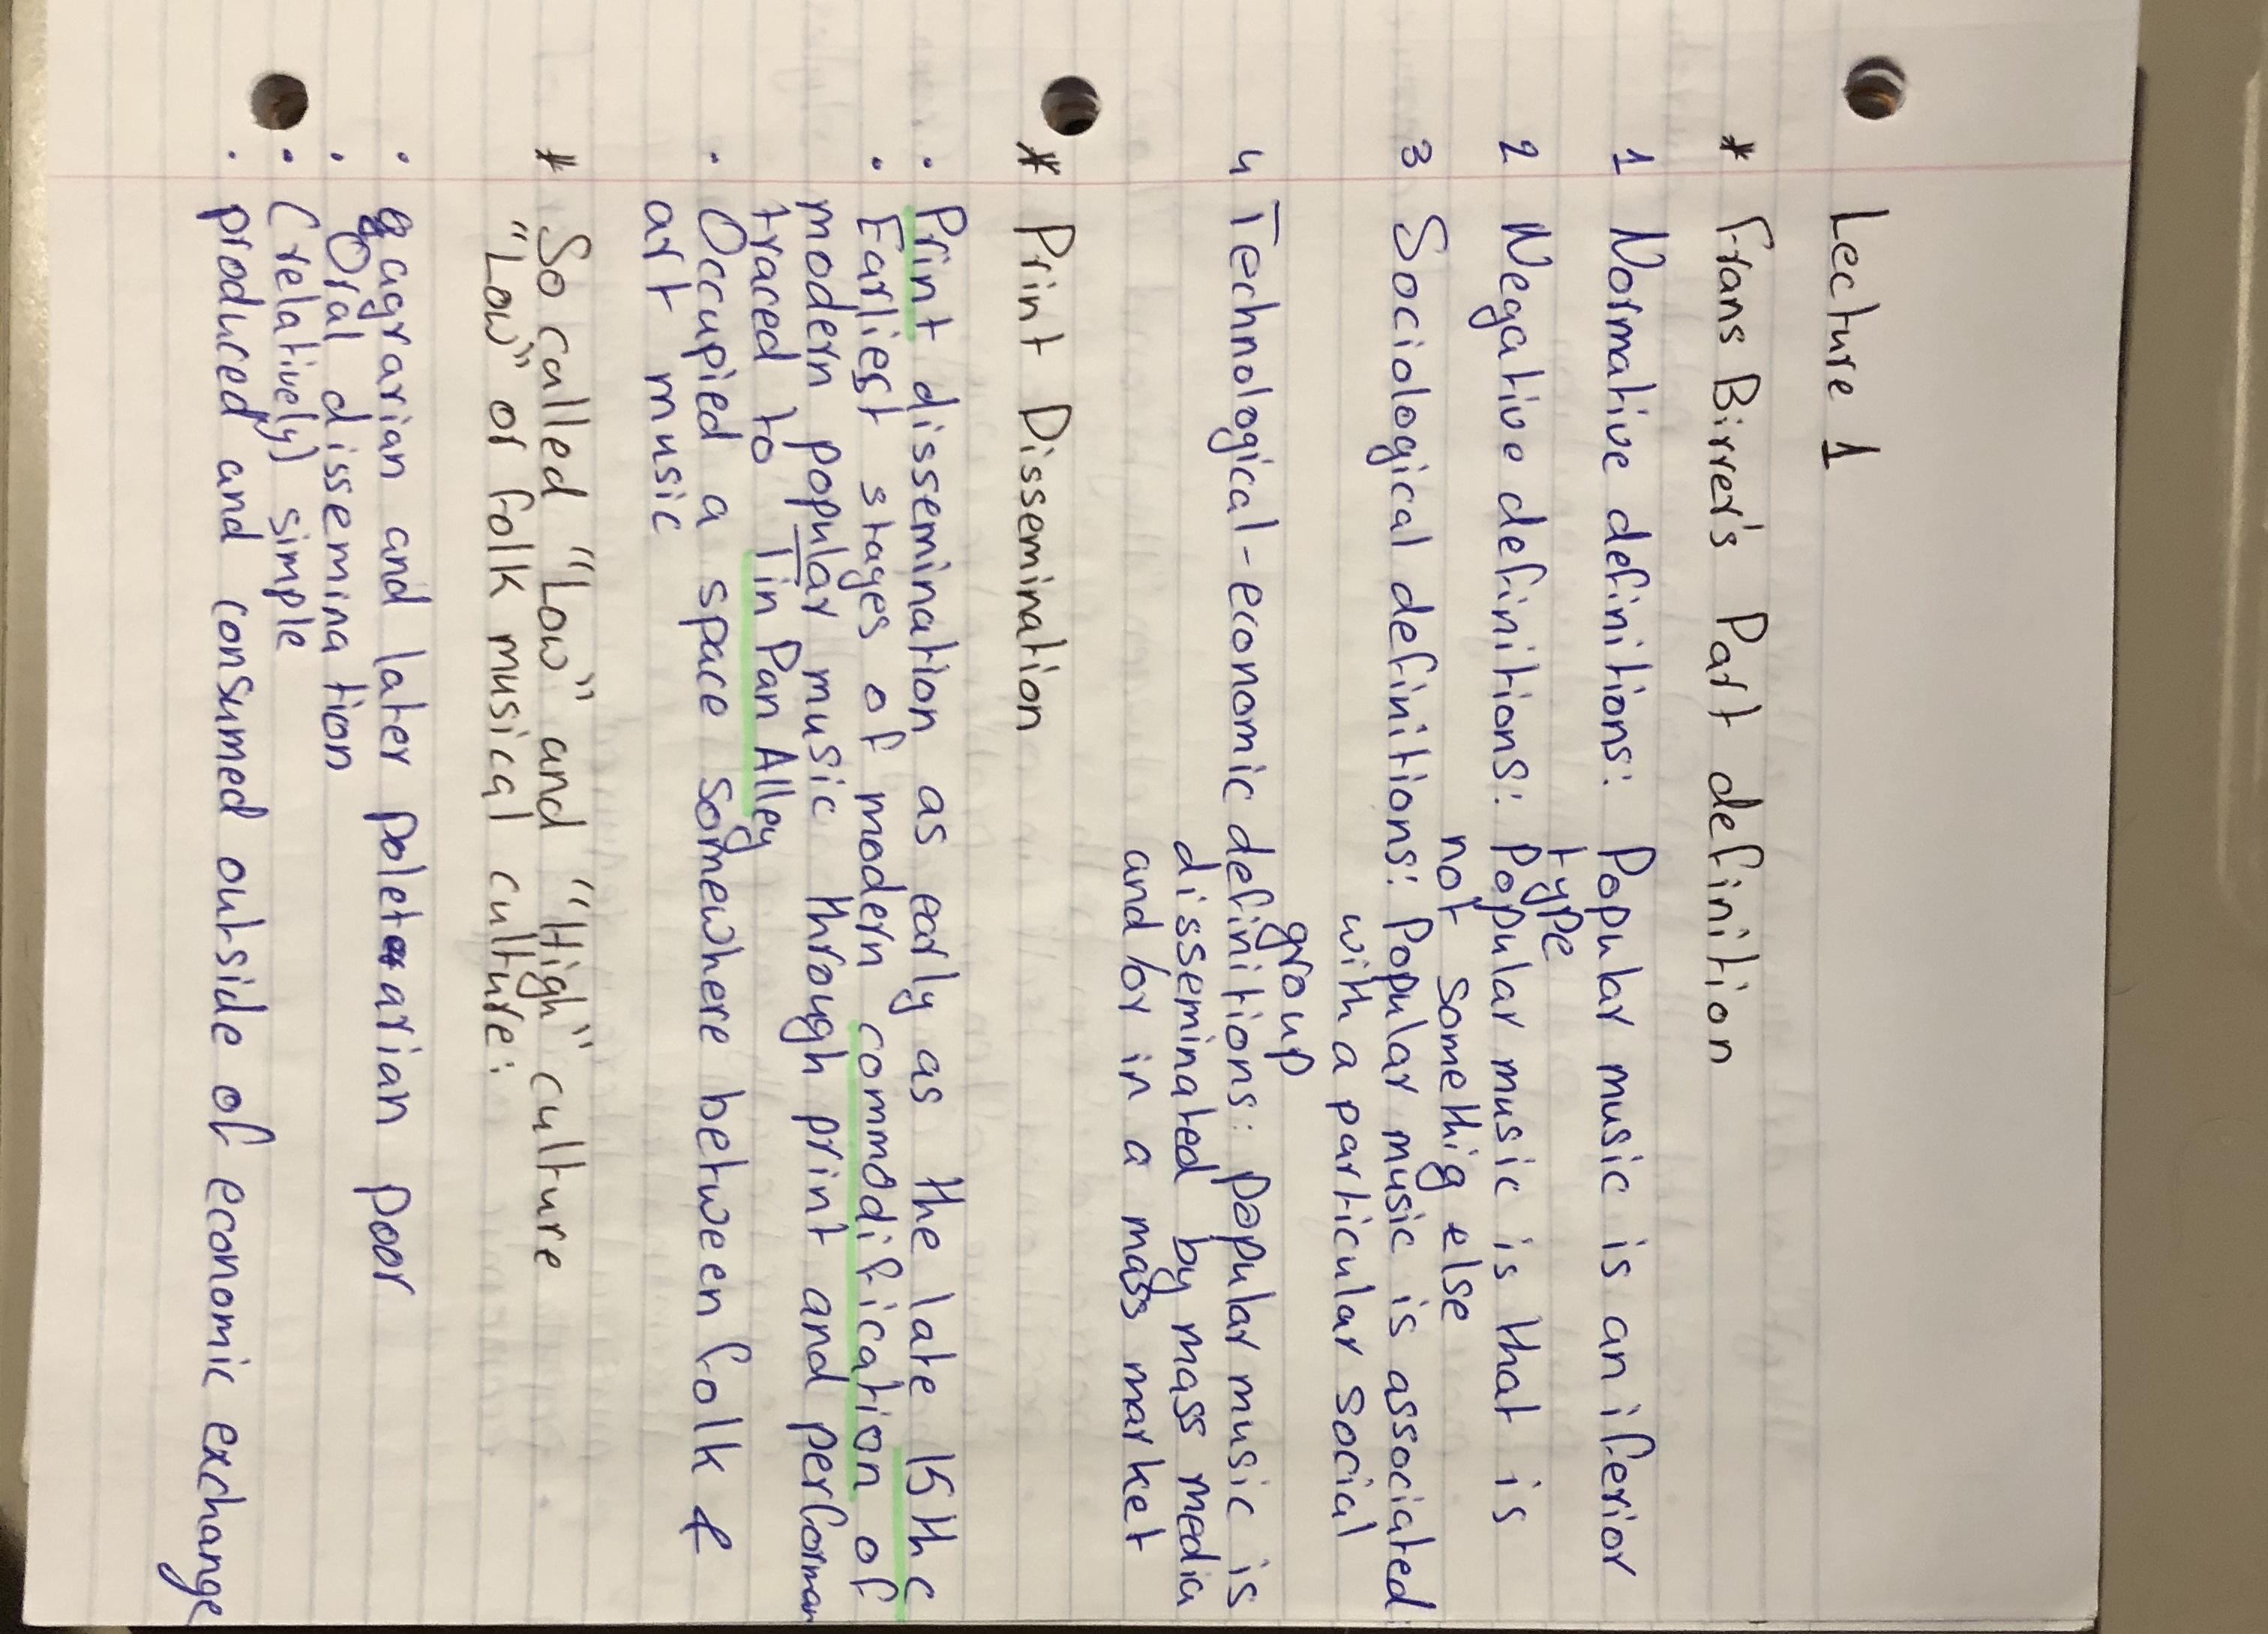 Lecture 1
* Frans Birrer's Part definition
1 Normative definitions: Popular music is an iferior
type
2 Negative definitions: Popular music is that is
not somethig else
3 Sociological definitions: Popular music is associated
with a particular social
group
4 Technological-economic definitions: popular music is
disseminated by mass media
and/or in a mass market
* Print Dissemination
• Print dissemination as early as the late 15th c
• Earliest stages of modern commodification of
modern popular music through print and performan
traced to Tin Pan Alley
• Occupied a space somewhere between folk &
art music
* So called "Low" and "High" culture
"Low" or folk musical culture:
• agrarian and later poletarian poor
• Oral dissemination
• (relatively) simple
• produced and consumed outside of economic exchange